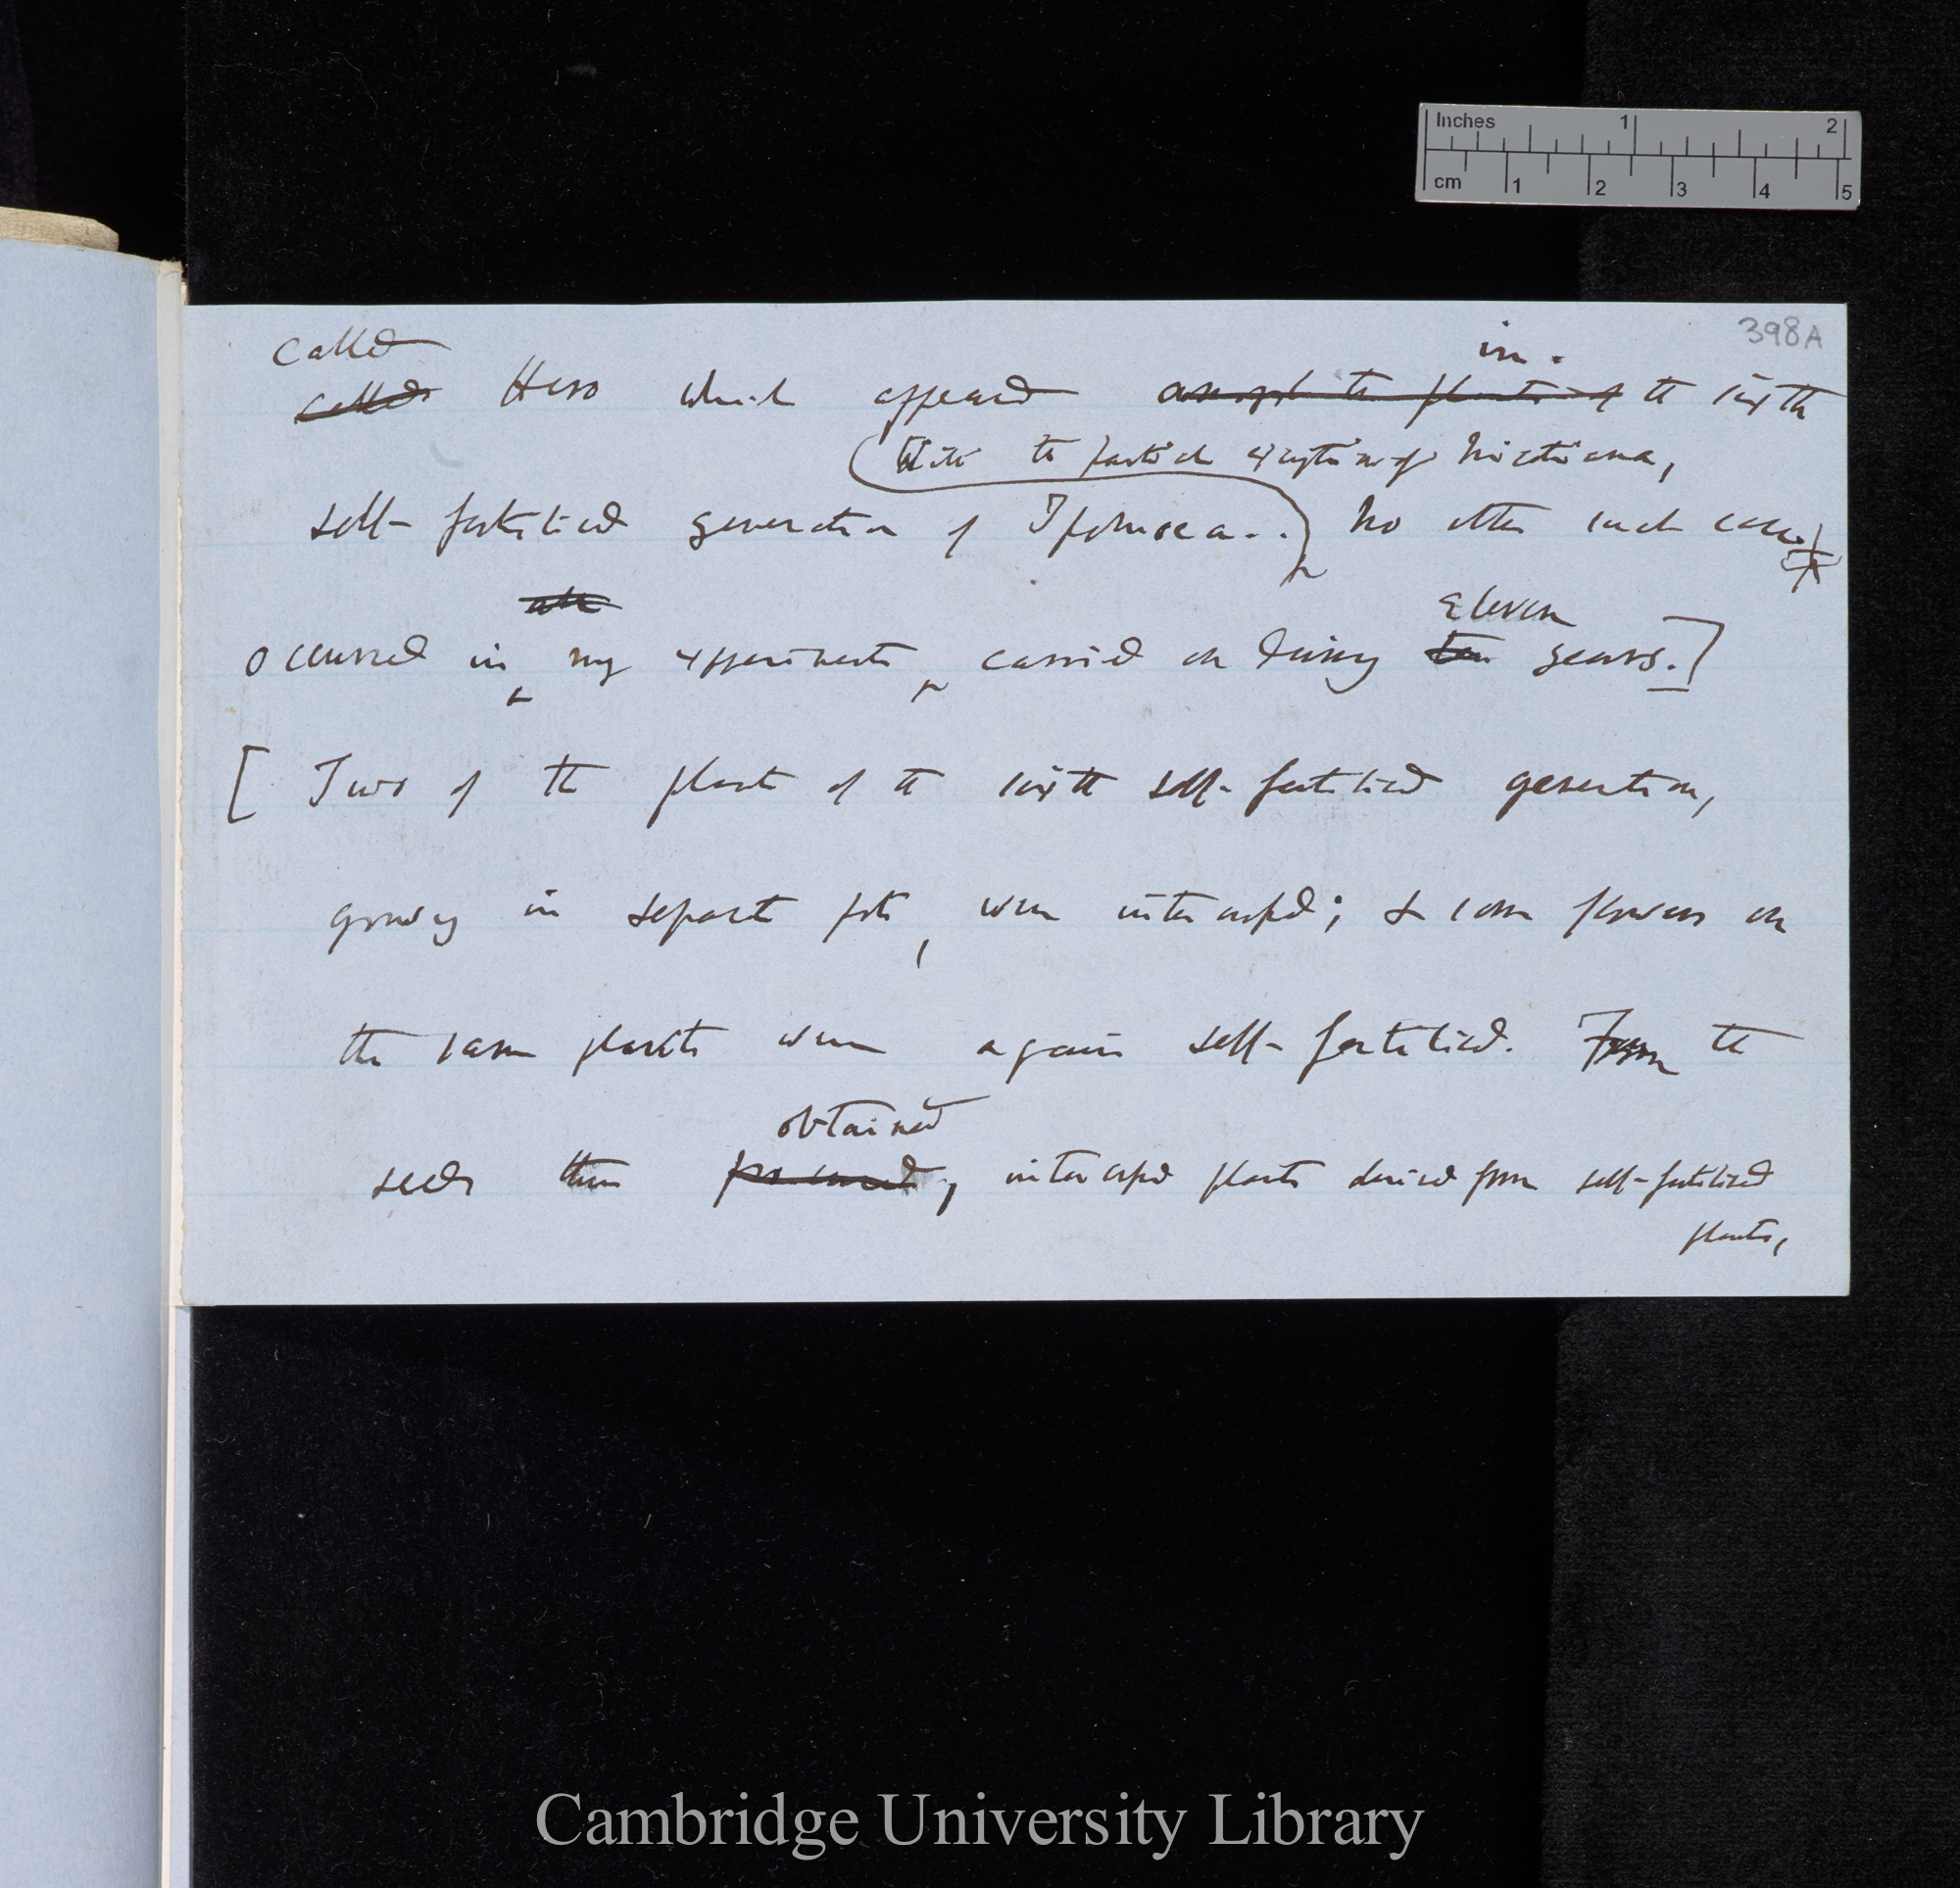 Inches 1 2
cm 1 2 3 4 5
398A
called in.
called Hero which appeared amongst the plants of the sixth
With the partial exception of Nicotiana,
self-fertilised generation of Ipomoea.. No other such case
all eleven
occurred in my experiments, carried on during ten years.]
[ Two of the plants of the sixth self-fertilised generation,
growing in separate pots, were intercrossed; & some flowers on
the same plants were again self-fertilised. From the
obtained
seeds thus procured, intercrossed plants derived from self-fertilised
plants,
Cambridge University Library